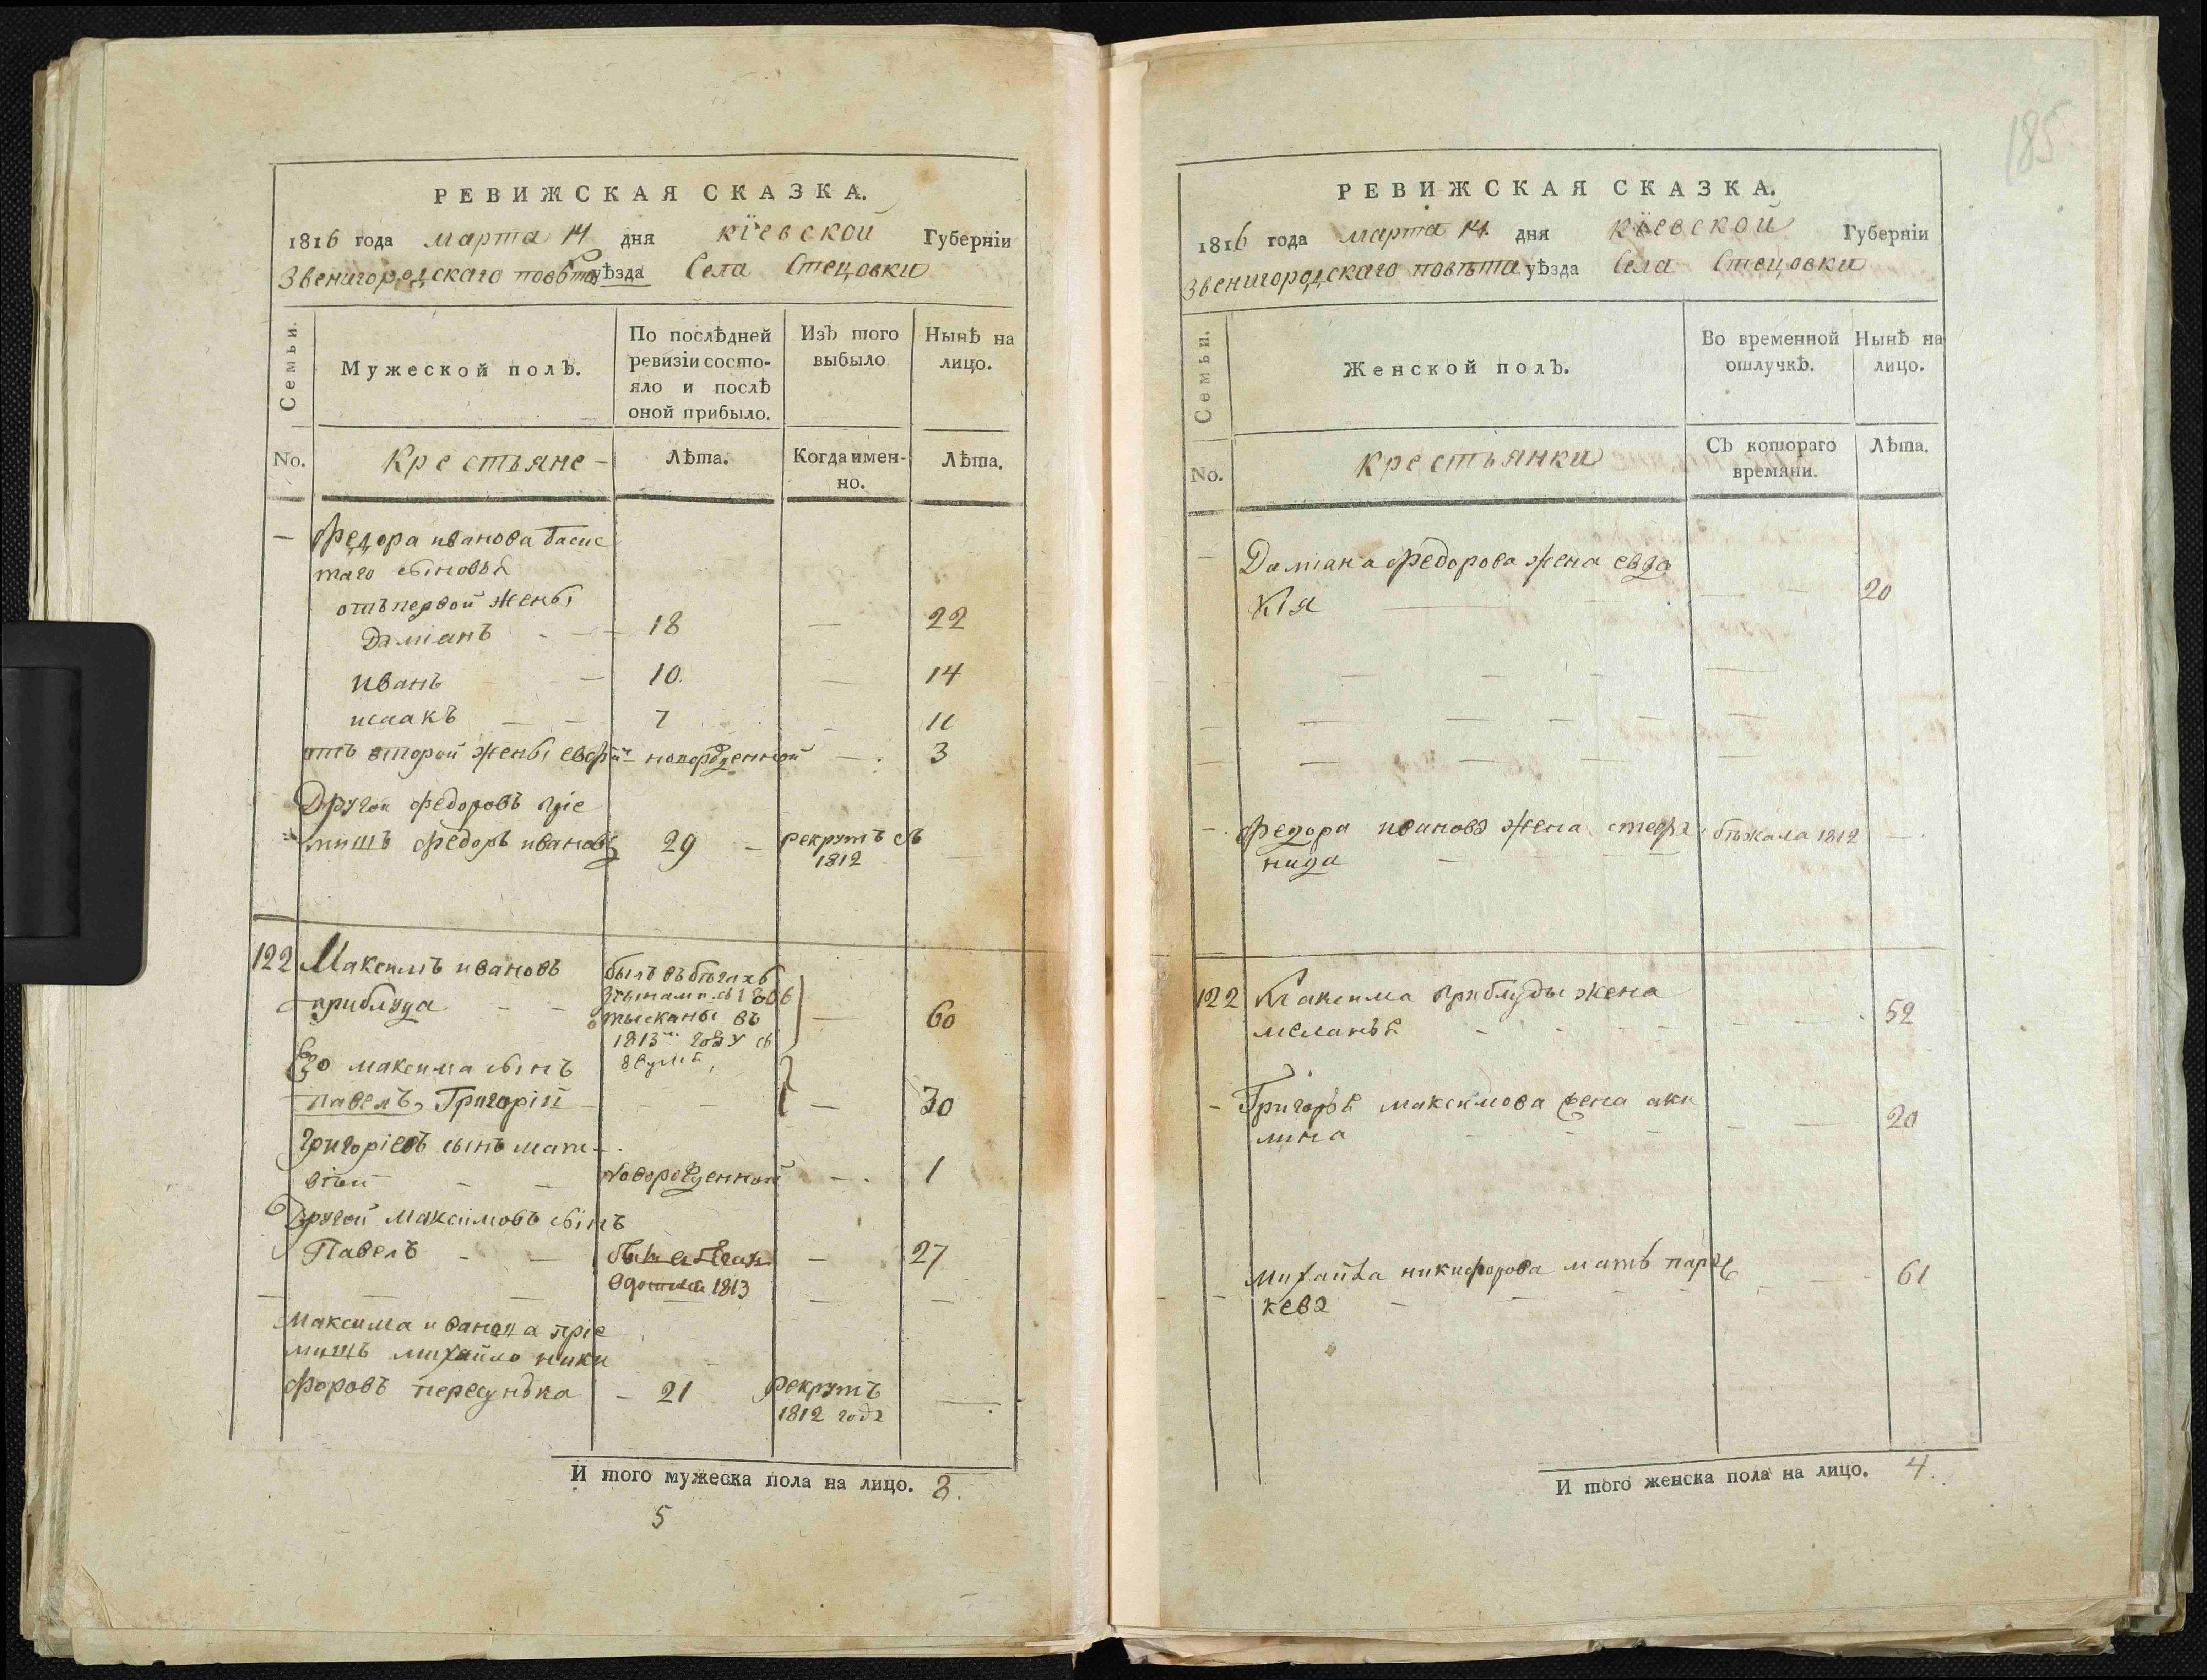 РЕВИЖСКАЯ СКАЗКА.
1816 года марта 14 дня кіевской Губерніи
Звенигородскаго повѣта уѣзда Села Стецовки
Семьи.
Мужеской полъ.
По послѣдней
ревизіи состо-
яло и послѣ
оной прибыло.
Изъ того
выбыло
Нынѣ на
лицо.
No.
Крестьяне
Лѣта.
Когда имен-
но.
Лѣта.
Федора иванова басис
таго сыновья
отъ первой жены
Даміанъ 18 22
иванъ 10. 14
исаакъ 7 11
отъ второй жены новорожденной 3
Другой федоровъ пріе
мишъ федоръ ивановъ 29 рекрутъ съ
1812
122 Максимъ ивановъ былъ въ бѣгахъ
приблуда 1806 60
отысканы въ
1813 году съ
Его максима сынъ двумя
павелъ, Григорій 30
григоріевъ сынъ мат
вѣй новорожденной 1
Другой максимовъ сынъ
Павелъ 27
1813
максима иванова пріе
мишъ михайло ники
форовъ пересунька 21 рекрутъ
1812 года
И того мужеска пола на лицо. 8.
5
185
РЕВИЖСКАЯ СКАЗКА.
1816 года марта 14. дня кіевской Губерніи
Звенигородскаго повѣта уѣзда Села Стецовки
Семьи.
Женской полъ.
Во временной
отлучкѣ.
Нынѣ на
лицо.
No.
крестьянки
Съ котораго
времяни.
Лѣта.
Даміана федорова жена евдо
кія 20
федора иванова жена стефа бѣжала 1812
нида
122 Максима приблуды жена
меланья 52
Григорья максимова жена аки
лина 20
михайла никифорова мать парас
кева 61
И того женска пола на лицо. 4.